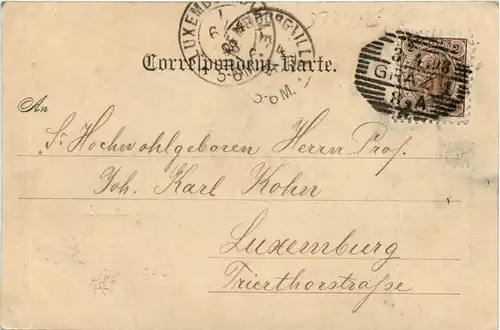 LUXEMBOURG VILLE
5-6 M.
Correspondenz-Karte.
GRAZ
An
Sr. Hochwohlgeboren Herrn Prof.
Joh. Karl Kohn
Luxemburg
Trierthorstraße